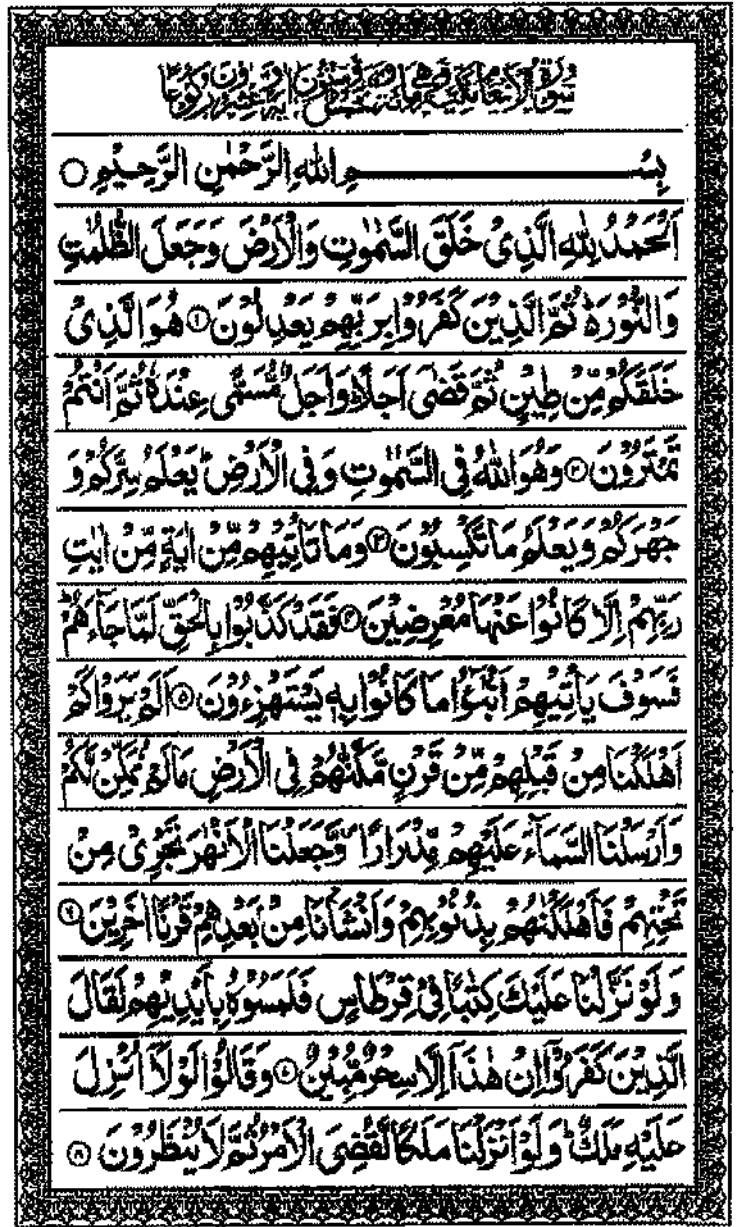 سورة الانعام مكية وهي مائة وخمس وستون اية وعشرون ركوعا
بِسْمِ اللهِ الرَّحْمٰنِ الرَّحِيْمِ ○
اَلْحَمْدُ لِلّٰهِ الَّذِیْ خَلَقَ السَّمٰوٰتِ وَالْاَرْضَ وَجَعَلَ الظُّلُمٰتِ
وَالنُّوْرَ ۬ؕ ثُمَّ الَّذِیْنَ كَفَرُوْا بِرَبِّهِمْ یَعْدِلُوْنَ ۝۱ هُوَ الَّذِیْ
خَلَقَكُمْ مِّنْ طِیْنٍ ثُمَّ قَضٰۤی اَجَلًا ؕ وَاَجَلٌ مُّسَمًّی عِنْدَهٗ ثُمَّ اَنْتُمْ
تَمْتَرُوْنَ ۝۲ وَهُوَ اللّٰهُ فِی السَّمٰوٰتِ وَفِی الْاَرْضِ ؕ یَعْلَمُ سِرَّكُمْ وَ
جَهْرَكُمْ وَیَعْلَمُ مَا تَكْسِبُوْنَ ۝۳ وَمَا تَاْتِیْهِمْ مِّنْ اٰیَةٍ مِّنْ اٰیٰتِ
رَبِّهِمْ اِلَّا كَانُوْا عَنْهَا مُعْرِضِیْنَ ۝۴ فَقَدْ كَذَّبُوْا بِالْحَقِّ لَمَّا جَآءَهُمْ ؕ
فَسَوْفَ یَاْتِیْهِمْ اَنْۢبٰٓؤُا مَا كَانُوْا بِهٖ یَسْتَهْزِءُوْنَ ۝۵ اَلَمْ یَرَوْا كَمْ
اَهْلَكْنَا مِنْ قَبْلِهِمْ مِّنْ قَرْنٍ مَّكَّنّٰهُمْ فِی الْاَرْضِ مَا لَمْ نُمَكِّنْ لَّكُمْ
وَاَرْسَلْنَا السَّمَآءَ عَلَیْهِمْ مِّدْرَارًا ۪ وَّجَعَلْنَا الْاَنْهٰرَ تَجْرِیْ مِنْ
تَحْتِهِمْ فَاَهْلَكْنٰهُمْ بِذُنُوْبِهِمْ وَاَنْشَاْنَا مِنْۢ بَعْدِهِمْ قَرْنًا اٰخَرِیْنَ ۝۶
وَلَوْ نَزَّلْنَا عَلَیْكَ كِتٰبًا فِیْ قِرْطَاسٍ فَلَمَسُوْهُ بِاَیْدِیْهِمْ لَقَالَ
الَّذِیْنَ كَفَرُوْۤا اِنْ هٰذَاۤ اِلَّا سِحْرٌ مُّبِیْنٌ ۝۷ وَقَالُوْا لَوْلَاۤ اُنْزِلَ
عَلَیْهِ مَلَكٌ ؕ وَلَوْ اَنْزَلْنَا مَلَكًا لَّقُضِیَ الْاَمْرُ ثُمَّ لَا یُنْظَرُوْنَ ۝۸